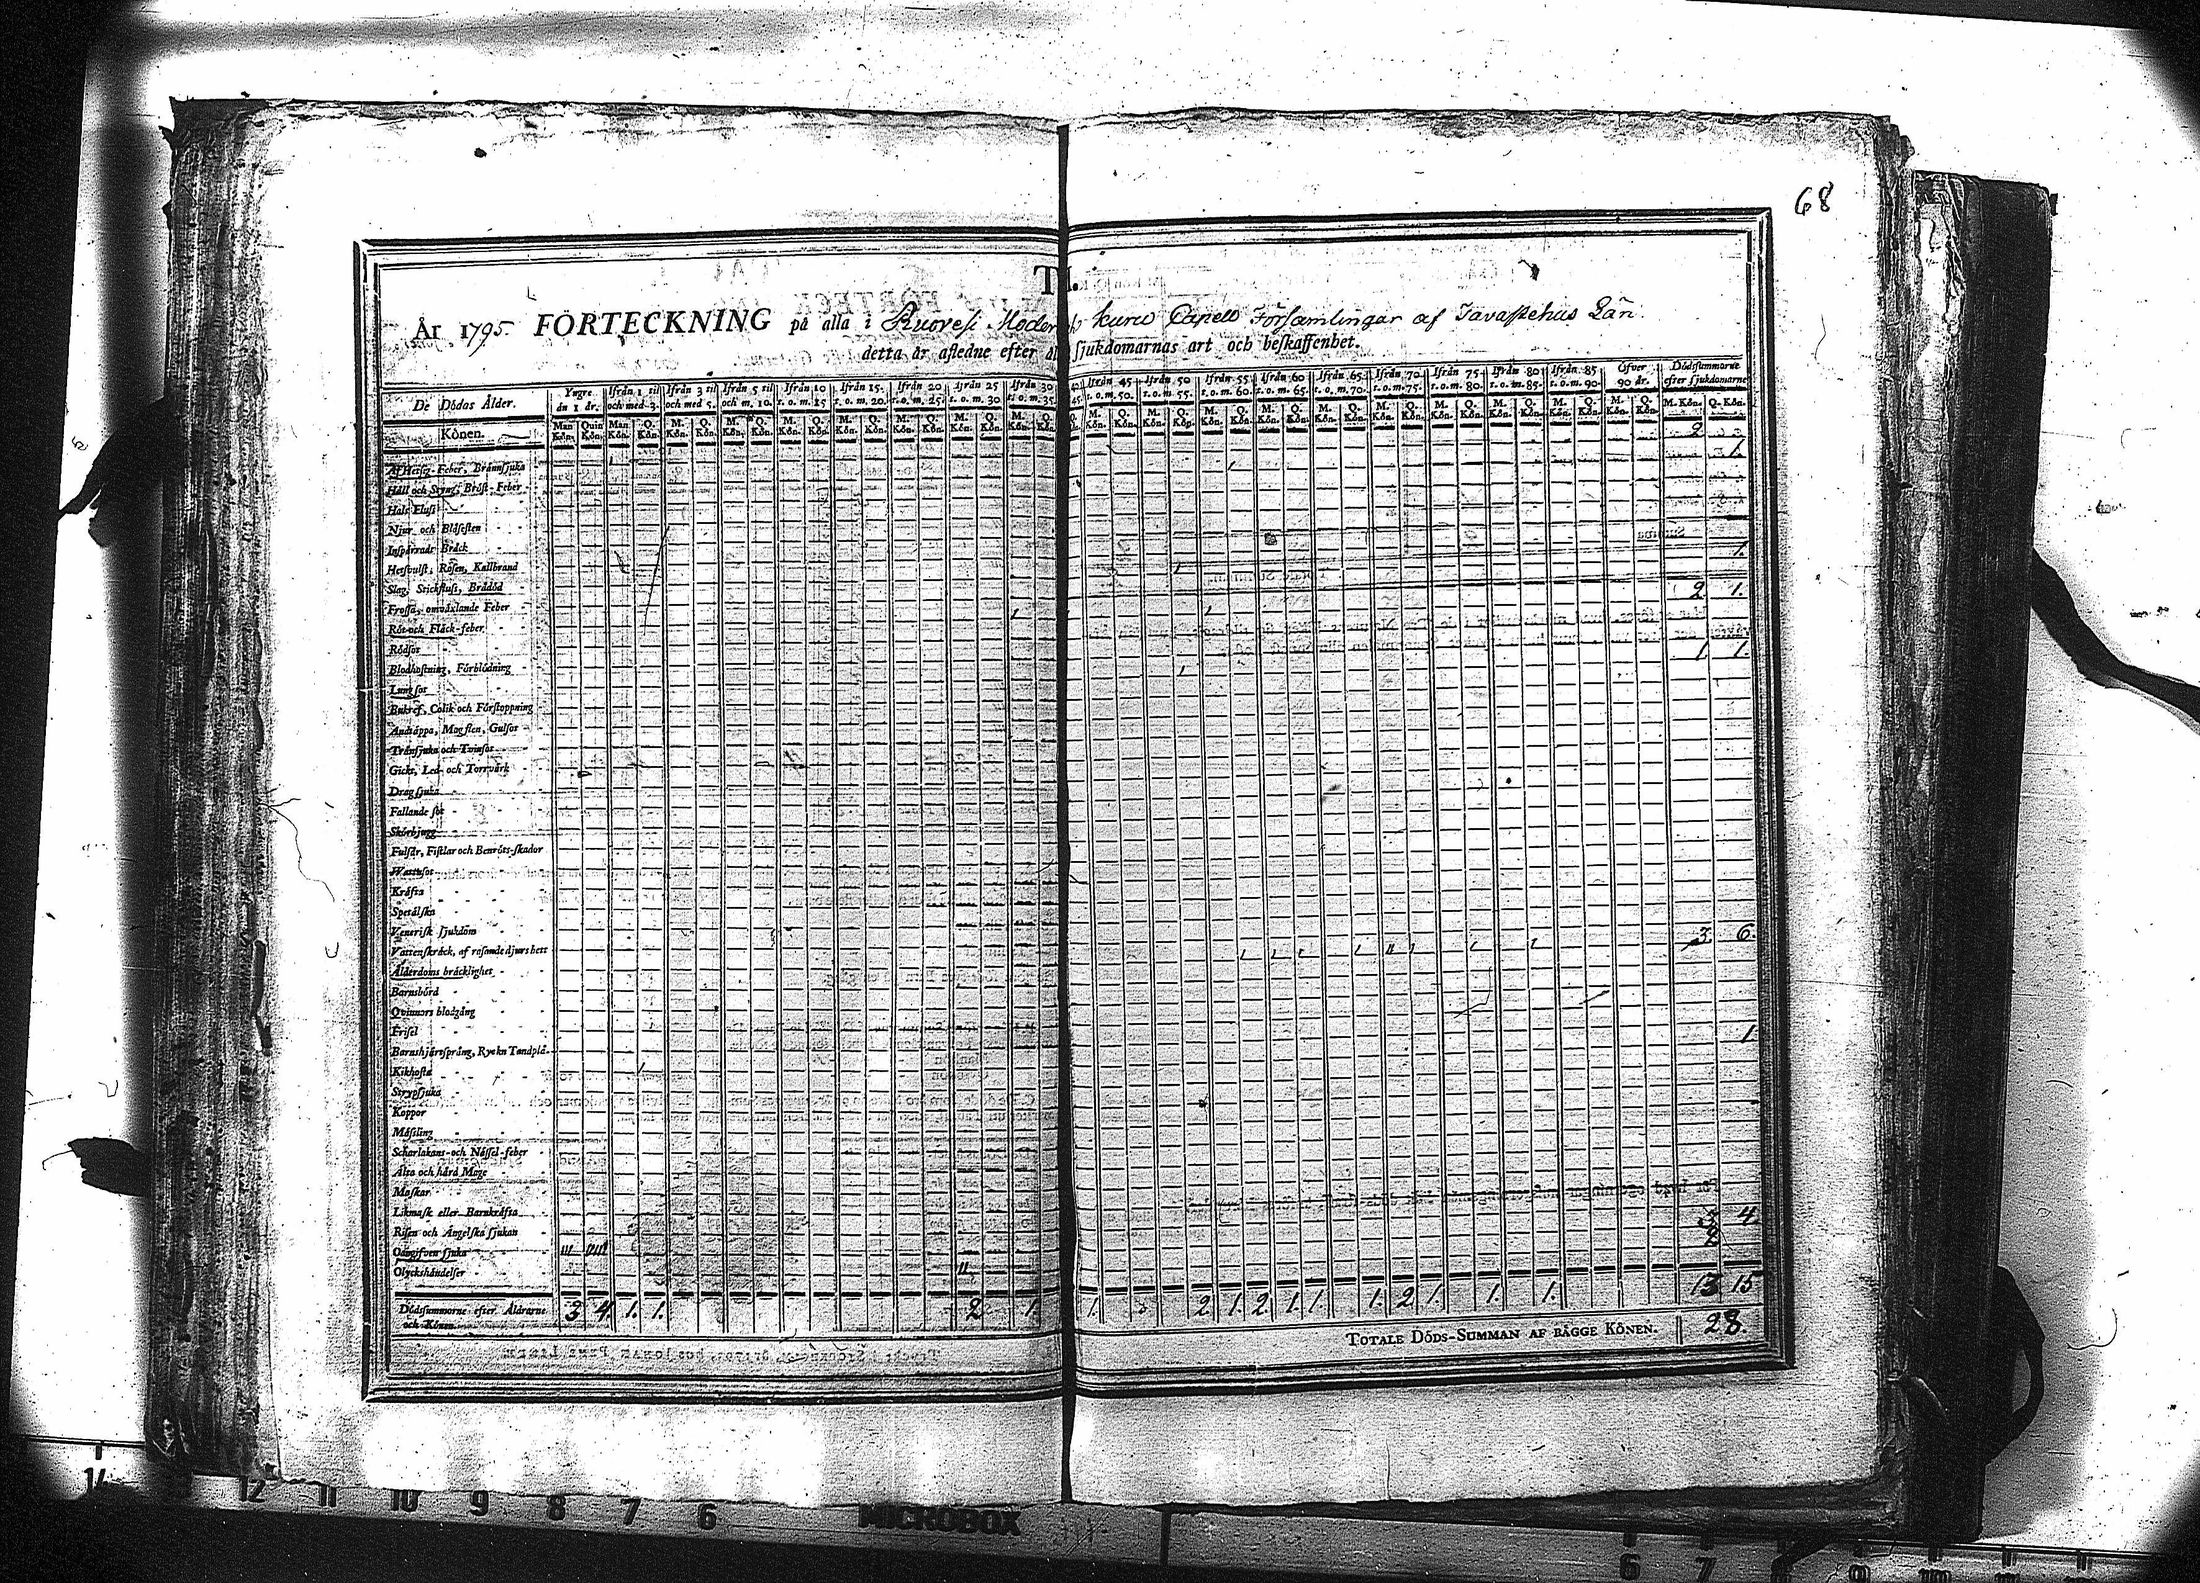 68
År 1795. FÖRTECKNING på alla i Ruovesi Moder kuru Capell Församlingar af Tavastehus Län
detta år afledne efter sjukdomarnas art och beskaffenhet.
De Dödas Ålder. Yngre än 1 år. Ifrån 1 til och med 3. Ifrån 3 til och med 5. Ifrån 5 til och m. 10. Ifrån 10 t. o. m. 15 Ifrån 15. t. o. m. 20. Ifrån 20 t. o. m. 25. Ifrån 25 t. o. m. 30 Ifrån 30 t. o. m. 35. Ifrån 45 t. o. m. 50. Ifrån 50 t. o. m. 55. Ifrån 55 t. o. m. 60. Ifrån 60 t. o. m. 65. Ifrån 65 t. o. m. 70. Ifrån 70 t. o. m. 75. Ifrån 75 t. o. m. 80. Ifrån 80 t. o. m. 85. Ifrån 85 t. o. m. 90. Öfver 90 år. Dödssummorne efter sjukdomarne
Könen. Man Kön. Quin Kön. Man Kön. Q. Kön. M. Kön. Q. Kön. M. Kön. Q. Kön. M. Kön. Q. Kön. M. Kön. Q. Kön. M. Kön. Q. Kön. M. Kön. Q. Kön. M. Kön. Q. Kön. M. Kön. Q. Kön. M. Kön. Q. Kön. M. Kön. Q. Kön. M. Kön. Q. Kön. M. Kön. Q. Kön. M. Kön. Q. Kön. M. Kön. Q. Kön. M. Kön. Q. Kön. M. Kön. Q. Kön. M. Kön. Q. Kön. M. Kön. Q. Kön.
Af Hetsig Feber, Brännsjuka 2
Håll och Styng, Bröst-Feber 1.
Hals Flusi
Njur och Blåsesten
Inspärradt Bråck
Hetsvulst, Rosen, Kallbrand 1.
Slag, Stickflusi, Brådöd
Frossa, omväxlande Feber 2 1.
Röt och Fläck-feber
Rödsot
Blodhostning, Förblödning 1 1.
Lungsot
Bukref, Colik och Förstoppning
Andtäppa, Magsten, Gulsot
Trånsjuka och Tvinsot
Gickt, Led- och Torrvärk
Dragsjuka
Fallande sot
Skörbjugg
Fulsår, Fistlar och Benröts-skador
Wattusot
Kräfta
Spetälska
Venerisk sjukdom
Vattenskräck, af rasande djurs bett 3 6.
Ålderdoms bräcklighet
Barnsbörd
Qvinnors blodgång
Frisel
Barnshjärtsprång, Ryck Tandplå- 1
Kikhosta
Strypsjuka
Koppor
Mässling
Scharlakans- och Nässel-feber
Älta och hård Mage
Maskar
Likmask eller Barnkräfta
Risen och Ängelska sjukan 3 4
Oangifven sjuka III IIII 2
Olyckshändelser II
Dödssummorne efter Åldrarne och Könen. 3 4. 1. 1. 2 1. 1. 2 1. 2. 1. 1. 1. 2 1. 1. 1. 13 15
TOTALE DÖDS-SUMMAN AF BÄGGE KÖNEN. 28.
14 12 11 10 9 8 7 6 MICROBOX 6 7 8 9 10 11